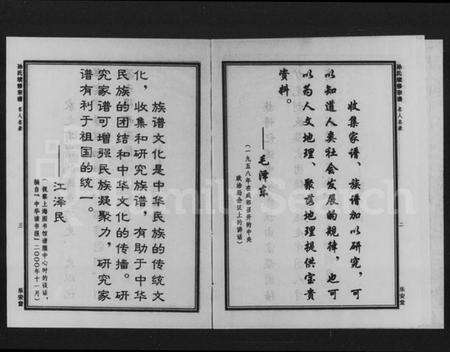 孙氏续修宗谱 名人名录
二
乐安堂
收集家谱、族谱加以研究，可
以知道人类社会发展的规律，也可
以为人文地理、聚落地理提供宝贵
资料。
——毛泽东
（一九五八年在成都召开的中央
政治局会议上的讲话）
孙氏续修宗谱 名人名录
三
乐安堂
族谱文化是中华民族的传统文
化，收集和研究族谱，有助于中华
民族的团结和中华文化的传播。研
究家谱可增强民族凝聚力，研究家
谱有利于祖国的统一。
——江泽民
摘自《中华读书报》二〇〇〇年十一月）